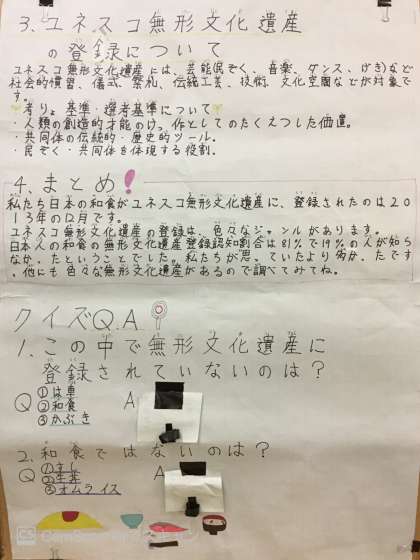 3.ユネスコ無形文化遺産
の登録について
ユネスコ無形文化遺産には、芸能民ぞく、音楽、ダンス、げき)など
社会的慣習、儀式、祭礼、伝統工芸、技術、文化空間などが対象で
す。
考りょ基準・選考基準について
・人類の創造的才能のけっ作としてのたくえつした価値。
・共同体の伝統的・歴史的ツール。
・民ぞく・共同体を体現する役割。
4.まとめ!
私たち日本の和食がユネスコ無形文化遺産に、登録されたのは20
13年の12月です。
ユネスコ無形文化遺産の登録は、色々なジャンルがあります。
日本人の和食の無形文化遺産登録認知割合は81%で19%の人が知ら
なかったということでした。私たちが思っていたより多かったです
。他にも色々な無形文化遺産があるので調べてみてね。
クイズQ.A
1.この中で無形文化遺産に
登録されていないのは?
Q ①は車 A
②和食
③かぶき
2.和食ではないのは?
Q ①すし A
②生姜
③オムライス
CS CamScanner